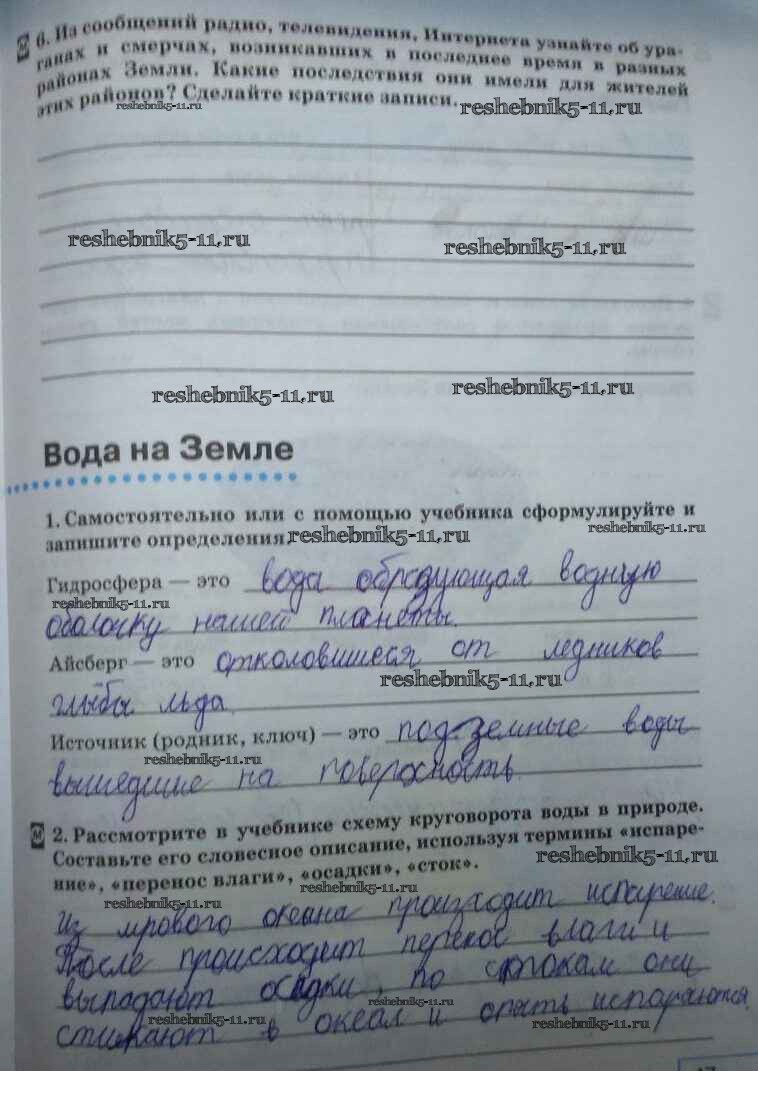 6. Из сообщений радио, телевидения, Интернета узнайте об ура-
ганах и смерчах, возникавших в последнее время в разных
районах Земли. Какие последствия они имели для жителей
этих районов? Сделайте краткие записи.
reshebnik5-11.ru
reshebnik5-11.ru
reshebnik5-11.ru
reshebnik5-11.ru
reshebnik5-11.ru
reshebnik5-11.ru
Вода на Земле
1. Самостоятельно или с помощью учебника сформулируйте и
reshebnik5-11.ru
запишите определения.
reshebnik5-11.ru
Гидросфера — это вода образующая водную
reshebnik5-11.ru
оболочку нашей планеты.
Айсберг — это отколовшиеся от ледников
reshebnik5-11.ru
глыбы льда.
Источник (родник, ключ) — это подземные воды
reshebnik5-11.ru
вышедшие на поверсность.
2. Рассмотрите в учебнике схему круговорота воды в природе.
Составьте его словесное описание, используя термины «испаре-
reshebnik5-11.ru
ние», «перенос влаги», «осадки», «сток».
reshebnik5-11.ru
reshebnik5-11.ru
Из мрового океана происходит испарение.
После происходит перенос влаги и
выпадают осадки, по стокам они
reshebnik5-11.ru
стикают в океан и опять испараются.
reshebnik5-11.ru
reshebnik5-11.ru